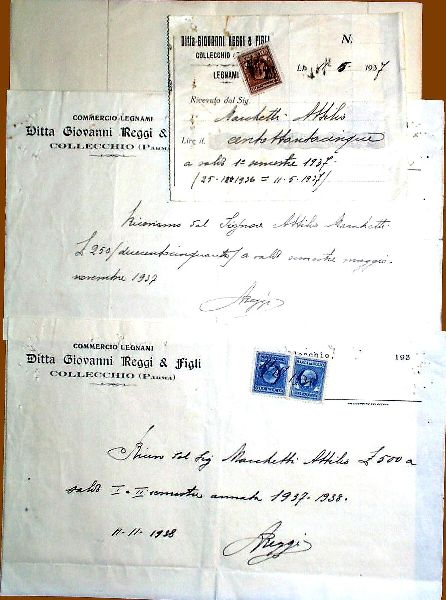 Ditta Giovanni Reggi & Figli
COLLECCHIO
LEGNAMI
N.
5 1937
Ricevuto dal Sig.
Marchetti Attilio
Lire it. centottantacinque
a saldo 1° semestre 1937
= 11-5-1937)
COMMERCIO LEGNAMI
Ditta Giovanni Reggi &
COLLECCHIO (PARMA)
Riceviamo dal Signor Attilio Marchetti
£ 250 (duecentocinquanta) a saldo semestre maggio-
novembre 1937
Reggi
COMMERCIO LEGNAMI
Ditta Giovanni Reggi & Figli
COLLECCHIO (PARMA)
193
Ricevo dal Sig Marchetti Attilio £ 500 a
saldo I - II semestre annata 1937-1938.
11-11-1938
Reggi